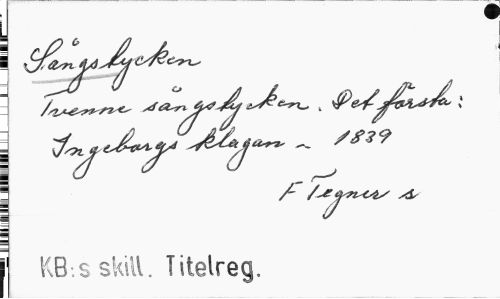 Sångstycken
Tvenne sångstycken. Det första:
Ingeborgs klagan ~ 1839
F Tegnér s
KB:s skill. Titelreg.